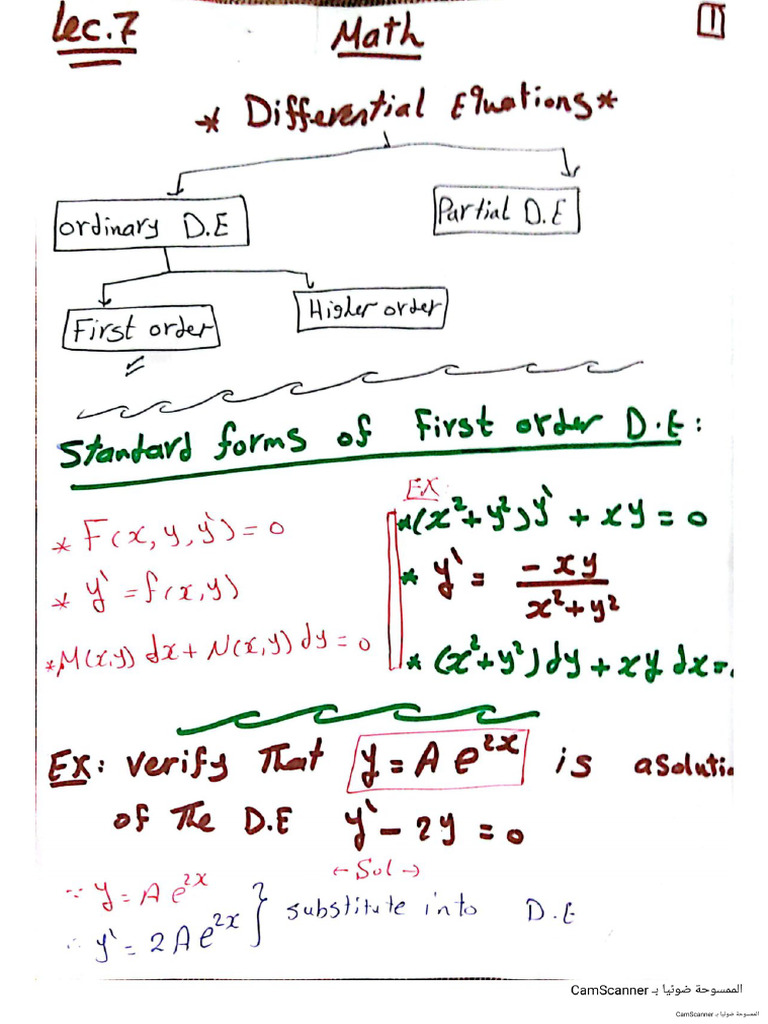 Lec.7 Math 1
* Differential Equations *
ordinary D.E Partial D.E
First order Higher order
Standard forms of First order D.E:
EX
* F(x, y, y`) = 0
* (x²+y²)y` + xy = 0
* y` = f(x,y)
* y` = -xy / x²+y²
* M(x,y) dx + N(x,y) dy = 0
* (x²+y²)dy + xy dx =
Ex: verify That y = A e^2x is a solutio
of The D.E y` - 2y = 0
←Sol→
∵ y = A e^2x
∴ y` = 2A e^2x } substitute into D.E
الممسوحة ضوئيا بـ CamScanner
الممسوحة ضوئيا بـ CamScanner